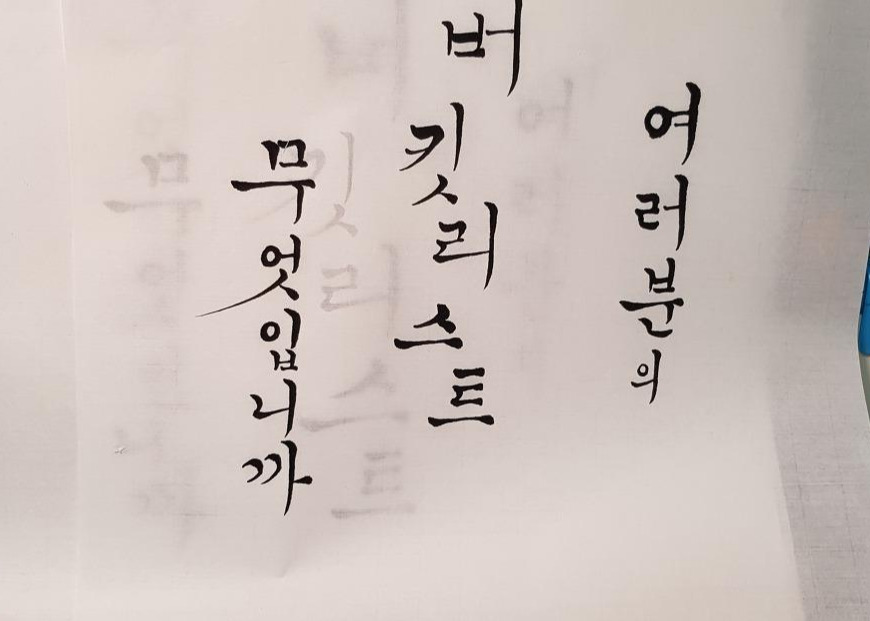 여러분의
버킷리스트
무엇입니까